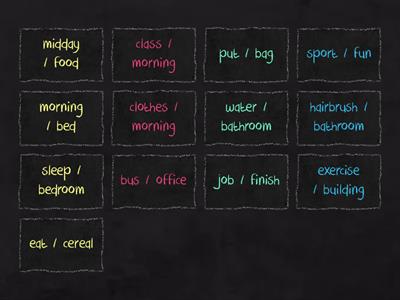 midday
/ food
class /
morning
put / bag
sport / fun
morning
/ bed
clothes /
morning
water /
bathroom
hairbrush /
bathroom
sleep /
bedroom
bus / office
job / finish
exercise
/ building
eat / cereal